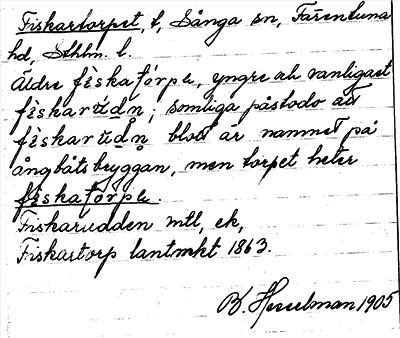 Fiskartorpet, t, Sånga sn, Färentuna
hd, Sthlm. l.
Äldre fiskatórpe, yngre ock vanligast
fiskarúdn; somliga påstodo att
fiskarúdn blott är namnet på
ångbåtsbryggan, men torpet heter
fiskatórpe.
Fiskarudden mtl, ek,
Fiskartorp lantmkt 1863.
B. Hesselman 1905